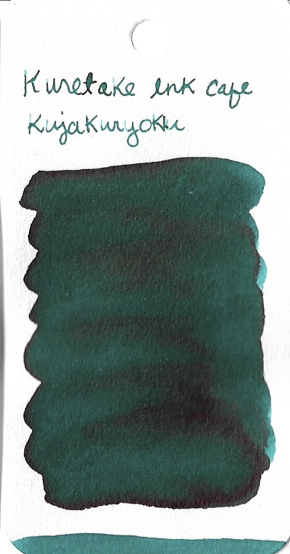 Kuretake ink cafe
Kujakuryoku